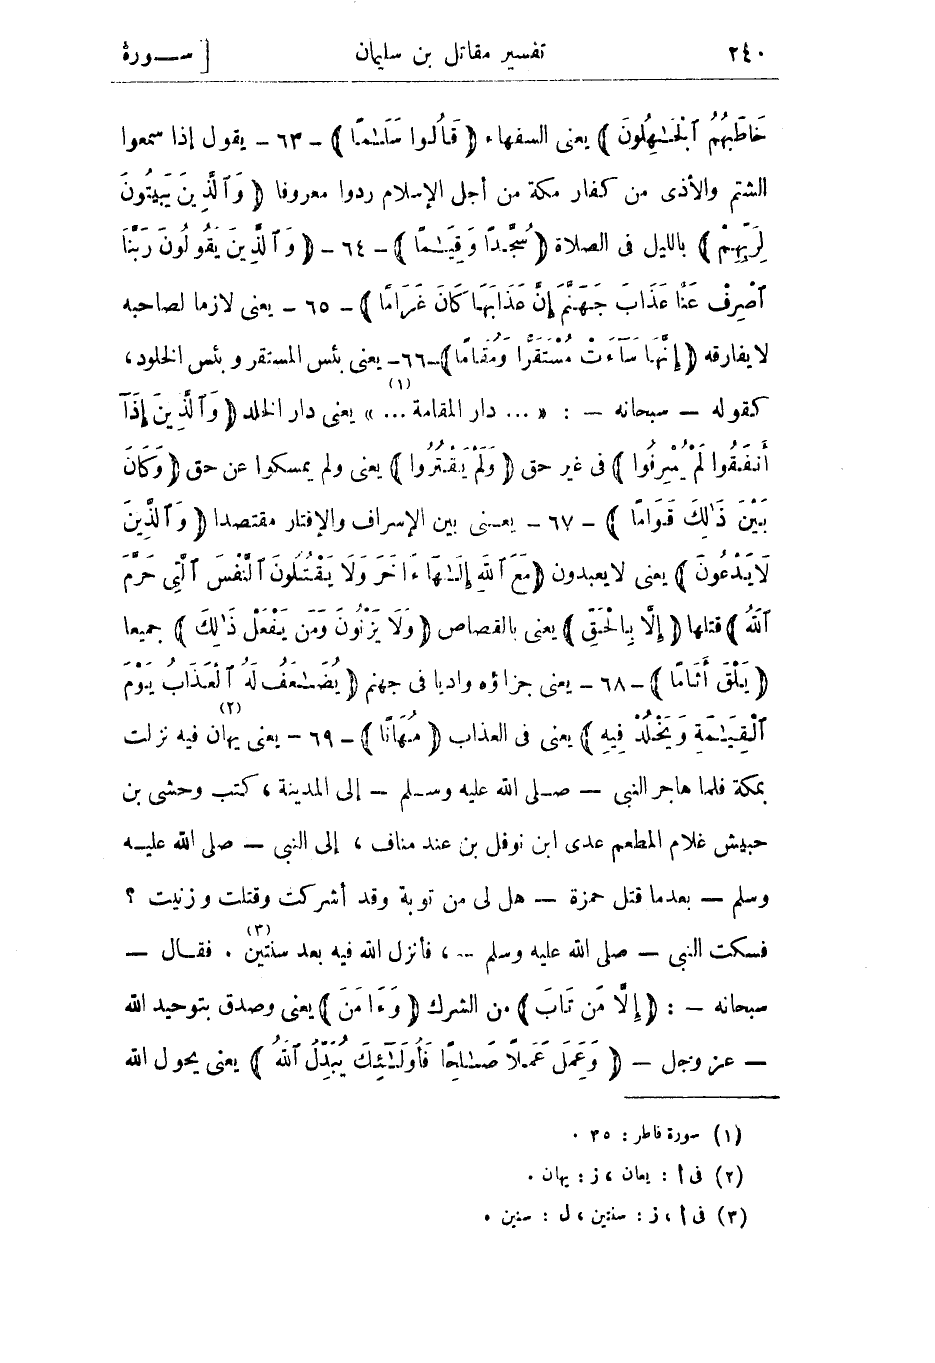 ٢٤٠ تفسير مقاتل بن سليمان [ سـورة
خَاطَبَهُمُ ٱلْجَـٰهِلُونَ ﴾ يعنى السفهاء ﴿ قَالُوا سَلَـٰمًا ﴾ ـ ٦٣ ـ يقول إذا سمعوا
الشتم والأذى من كفار مكة من أجل الإسلام ردوا معروفا ﴿ وَٱلَّذِينَ يَبِيتُونَ
لِرَبِّهِمْ ﴾ بالليل فى الصلاة ﴿ سُجَّدًا وَقِيَـٰمًا ﴾ ـ ٦٤ ـ ﴿ وَٱلَّذِينَ يَقُولُونَ رَبَّنَا
ٱصْرِفْ عَنَّا عَذَابَ جَهَنَّمَ إِنَّ عَذَابَهَا كَانَ غَرَامًا ﴾ ـ ٦٥ ـ يعنى لازما لصاحبه
لا يفارقه ﴿ إِنَّهَا سَآءَتْ مُسْتَقَرًّا وَمُقَامًا ﴾ـ٦٦ـ يعنى بئس المستقر و بئس الخلود،
كقوله ـ سبحانه ـ : « ... دار المقامة ... » (١) يعنى دار الخلد ﴿ وَٱلَّذِينَ إِذَآ
أَنفَقُوا لَمْ يُسْرِفُوا ﴾ فى غير حق ﴿ وَلَمْ يَقْتُرُوا ﴾ يعنى ولم يمسكوا عن حق ﴿ وَكَانَ
بَيْنَ ذَٰلِكَ قَوَامًا ﴾ ـ ٦٧ ـ يعـنى بين الإسراف والإقتار مقتصدا ﴿ وَٱلَّذِينَ
لَا يَدْعُونَ ﴾ يعنى لايعبدون ﴿ مَعَ ٱللَّهِ إِلَـٰهًا ءَاخَرَ وَلَا يَقْتُلُونَ ٱلنَّفْسَ ٱلَّتِى حَرَّمَ
ٱللَّهُ ﴾ قتلها ﴿ إِلَّا بِٱلْحَقِّ ﴾ يعنى بالقصاص ﴿ وَلَا يَزْنُونَ وَمَن يَفْعَلْ ذَٰلِكَ ﴾ جميعا
﴿ يَلْقَ أَثَامًا ﴾ ـ ٦٨ ـ يعنى جزاؤه واديا فى جهنم ﴿ يُضَـٰعَفْ لَهُ ٱلْعَذَابُ يَوْمَ
ٱلْقِيَـٰمَةِ وَيَخْلُدْ فِيهِ ﴾ يعنى فى العذاب ﴿ مُهَانًا ﴾ ـ ٦٩ ـ يعنى يهان (٢) فيه نزلت
بمكة فلما هاجر النبى ـ صـلى الله عليه وسـلم ـ إلى المدينة ، كتب وحشى بن
حبيش غلام المطعم عدى ابن نوفل بن عند مناف ، إلى النبى ـ صلى الله عليـه
وسلم ـ بعدما قتل حمزة ـ هل لى من توبة وقد أشركت وقتلت و زنيت ؟
فسكت النبى ـ صلى الله عليه وسلم ـ ، فأنزل الله فيه بعد سنتين (٣) . فقـال ـ
سبحانه ـ : ﴿ إِلَّا مَن تَابَ ﴾ من الشرك ﴿ وَءَامَنَ ﴾ يعنى وصدق بتوحيد الله
ـ عز وجل ـ ﴿ وَعَمِلَ عَمَلًا صَـٰلِحًا فَأُولَـٰٓئِكَ يُبَدِّلُ ٱللَّهُ ﴾ يعنى يحول الله
(١) سورة فاطر : ٣٥ .
(٢) فى أ : يعان ، ز : يهان .
(٣) فى أ ، ز : سنتين ، ل : سنين .